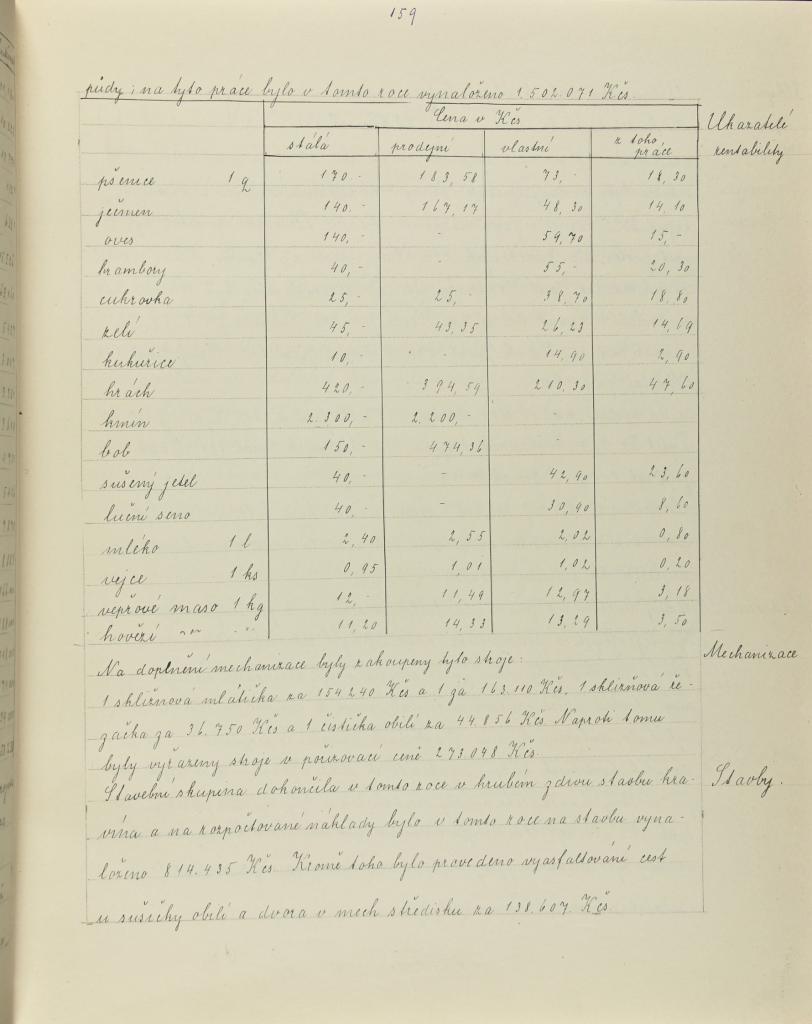 159
půdy; na tyto práce bylo v tomto roce vynaloženo 1.502.071 Kčs.
Cena v Kčs
Ukazatelé
rentability
stálá prodejní vlastní z toho práce
pšenice 1 q 170.- 183,58 73,- 18,30
ječmen 140.- 167,17 48,30 14,10
oves 140,- - 59,70 15,-
brambory 40,- - 55,- 20,30
cukrovka 25,- 25,- 38,70 18,80
zelí 45,- 43,35 26,23 14,69
kukuřice 10,- - 14,90 2,90
hrách 420,- 394,59 210,30 47,60
kmín 2.300,- 2.200,- -
bob 150,- 474,36 -
sušený jetel 40,- 42,90 23,60
luční seno 40,- - 30,90 8,60
mléko 1 l 2,40 2,55 2,02 0,80
vejce 1 ks 0,95 1,01 1,02 0,20
vepřové maso 1 kg 12,- 11,49 12,97 3,18
hovězí " " 11,20 14,33 13,29 3,50
Mechanizace
Na doplnění mechanizace byly zakoupeny tyto stroje:
1 sklizňová mlátička za 154240 Kčs a 1 za 163.110 Kčs, 1 sklizňová ře-
začka za 36.750 Kčs a 1 čistička obilí za 44.856 Kčs Naproti tomu
byly vyřazeny stroje v pořizovací ceně 273048 Kčs.
Stavby.
Stavební skupina dokončila v tomto roce v hrubém zdivu stavbu kra-
vína a na rozpočtované náklady bylo v tomto roce na stavbu vyna-
loženo 814.435 Kčs. Kromě toho bylo provedeno vyasfaltování cest
u sušičky obilí a dvora v mech středisku za 138.607 Kčs.